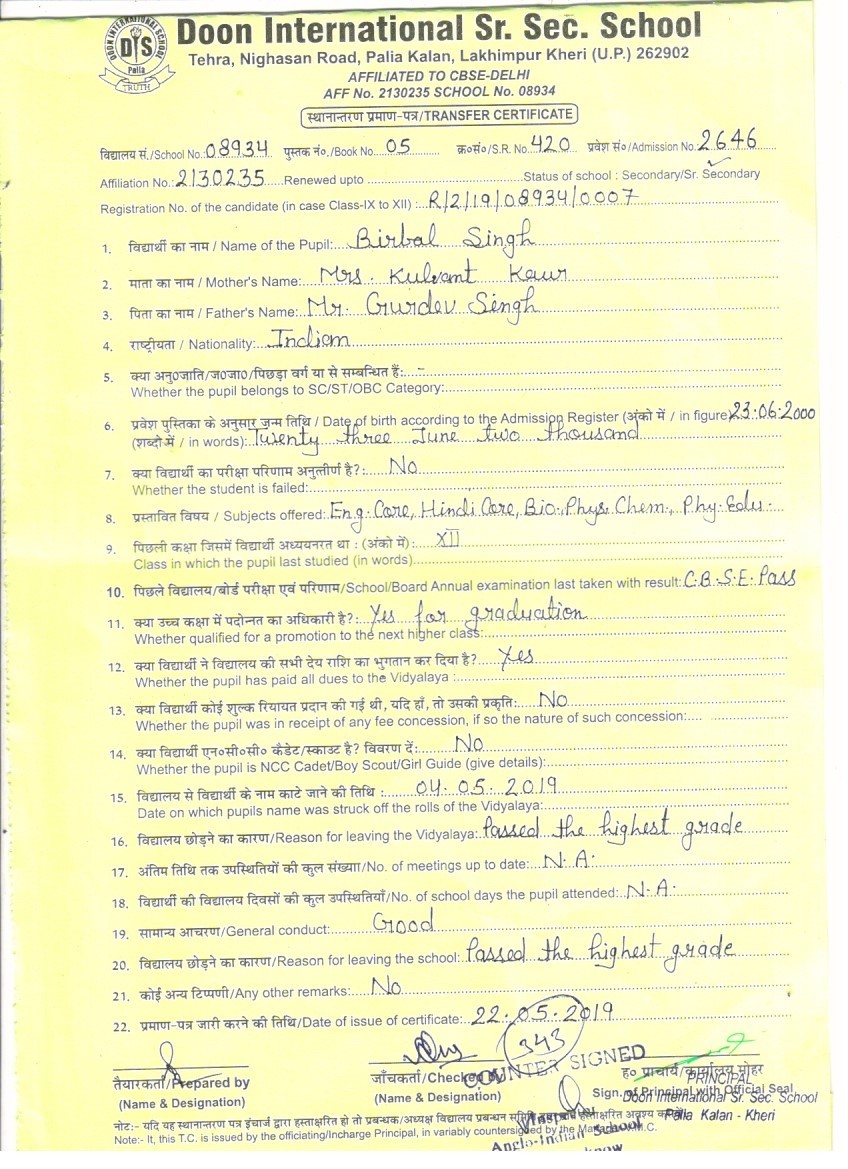 DOON INTERNATIONAL SCHOOL
DIS
Palia
TRUTH
Doon International Sr. Sec. School
Tehra, Nighasan Road, Palia Kalan, Lakhimpur Kheri (U.P.) 262902
AFFILIATED TO CBSE-DELHI
AFF No. 2130235 SCHOOL No. 08934
स्थानान्तरण प्रमाण-पत्र/TRANSFER CERTIFICATE
विद्यालय सं./School No.: 08934 पुस्तक नं०./Book No. 05 क्र०सं०/S.R. No. 420 प्रवेश सं०/Admission No.: 2646
Affiliation No.: 2130235 Renewed upto Status of school : Secondary/Sr. Secondary
Registration No. of the candidate (in case Class-IX to XII) : R/2/19/08934/0007
1. विद्यार्थी का नाम / Name of the Pupil: Birbal Singh
2. माता का नाम / Mother's Name: Mrs. Kulvant Kaur
3. पिता का नाम / Father's Name: Mr. Gurdev Singh
4. राष्ट्रीयता / Nationality: Indian
5. क्या अनु०जाति/ज०जा०/पिछड़ा वर्ग या से सम्बन्धित हैं: -
Whether the pupil belongs to SC/ST/OBC Category:
6. प्रवेश पुस्तिका के अनुसार जन्म तिथि / Date of birth according to the Admission Register (अंको में / in figure) 23.06.2000
(शब्दो में / in words): Twenty three June two thousand
7. क्या विद्यार्थी का परीक्षा परिणाम अनुत्तीर्ण है?: No
Whether the student is failed:
8. प्रस्तावित विषय / Subjects offered: Eng. Core, Hindi Core, Bio., Phys. Chem., Phy. Edu.
9. पिछली कक्षा जिसमें विद्यार्थी अध्ययनरत था : (अंको में): XII
Class in which the pupil last studied (in words)
10. पिछले विद्यालय/बोर्ड परीक्षा एवं परिणाम/School/Board Annual examination last taken with result: C.B.S.E. Pass
11. क्या उच्च कक्षा में पदोन्नत का अधिकारी है?: Yes for graduation
Whether qualified for a promotion to the next higher class:
12. क्या विद्यार्थी ने विद्यालय की सभी देय राशि का भुगतान कर दिया है? Yes
Whether the pupil has paid all dues to the Vidyalaya :
13. क्या विद्यार्थी कोई शुल्क रियायत प्रदान की गई थी, यदि हाँ, तो उसकी प्रकृति: No
Whether the pupil was in receipt of any fee concession, if so the nature of such concession:
14. क्या विद्यार्थी एन०सी०सी० कैडेट/स्काउट है? विवरण दें: No
Whether the pupil is NCC Cadet/Boy Scout/Girl Guide (give details):
15. विद्यालय से विद्यार्थी के नाम काटे जाने की तिथि : 04.05.2019
Date on which pupils name was struck off the rolls of the Vidyalaya:
16. विद्यालय छोड़ने का कारण/Reason for leaving the Vidyalaya: Passed the highest grade
17. अंतिम तिथि तक उपस्थितियों की कुल संख्या/No. of meetings up to date: N.A.
18. विद्यार्थी की विद्यालय दिवसों की कुल उपस्थितियाँ/No. of school days the pupil attended: N.A.
19. सामान्य आचरण/General conduct: Good
20. विद्यालय छोड़ने का कारण/Reason for leaving the school: Passed the highest grade
21. कोई अन्य टिप्पणी/Any other remarks: No
22. प्रमाण-पत्र जारी करने की तिथि/Date of issue of certificate: 22.05.2019
343
COUNTER SIGNED
तैयारकर्ता/Prepared by जाँचकर्ता/Checked by ह० प्राचार्य/कार्यालय मोहर
PRINCIPAL
(Name & Designation) (Name & Designation) Sign. of Principal with Official Seal
Doon International Sr. Sec. School
Palia Kalan - Kheri
नोट:- यदि यह स्थानान्तरण पत्र इंचार्ज द्वारा हस्ताक्षरित हो तो प्रबन्धक/अध्यक्ष विद्यालय प्रबन्धन हस्ताक्षरित अवश्य
Inspector
Note:- It, this T.C. is issued by the officiating/Incharge Principal, in variably countersigned by the M.C.
Anglo-Indian School